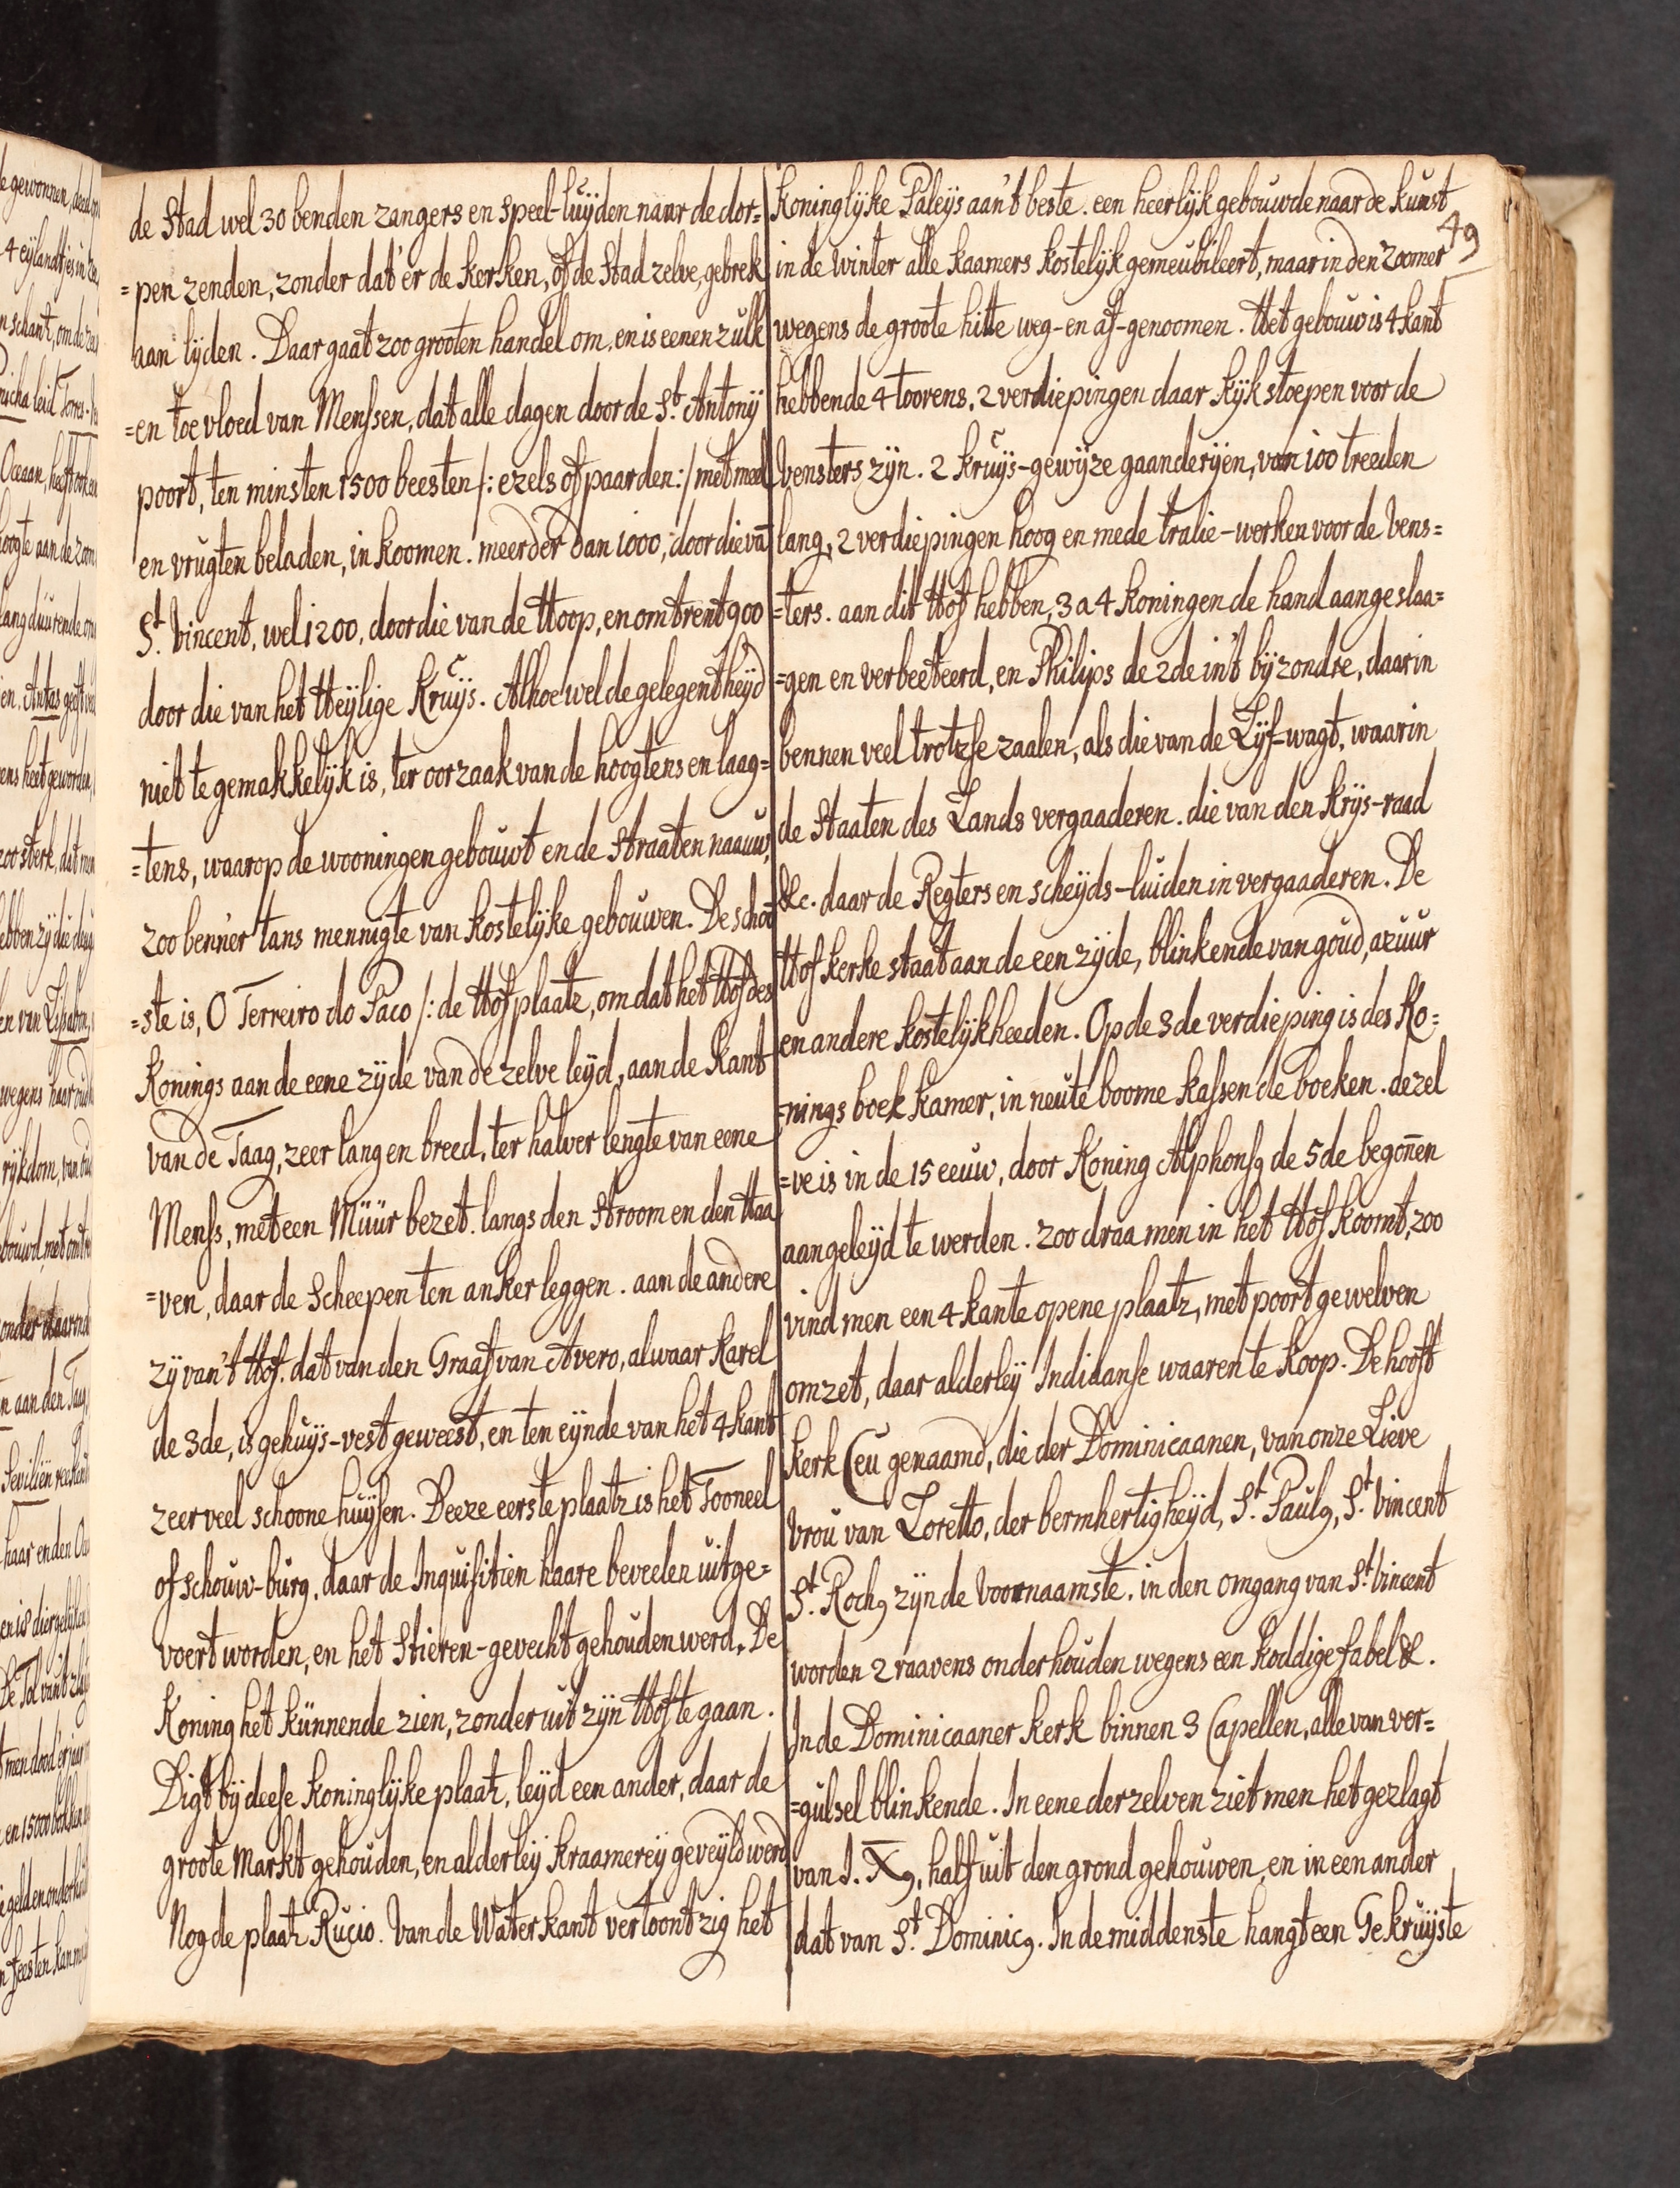 de Stad wel 30 benden zangers en speel-luijden naar de dor=
=pen zenden, zonder dat'er de kerken, of de Stad zelve, gebrek
aan lyden. Daar gaat zoo grooten handel om, en is eenen zulk
=en toe vloed van Menssen, dat alle dagen door de St. Antonij
poort, ten minsten 1500 beesten /: ezels of paarden :/ met meel
en vrugten beladen, in koomen. meerder dan 1000, door die vā
St. Vincent, wel 1200, door die van de Hoop, en omtrent 900
door die van het Heylige Kruijs. Alhoewel de gelegentheyd
niet te gemakkelyk is, ter oorzaak van de hoogtens en laag=
=tens, waarop de wooningen gebouwt en de Straaten naauw,
zoo benn'er tans mennigte van kostelyke gebouwen. De schoō
=ste is, O Terreiro do Paco /: de Hof plaatz, om dat het Hof des
Konings aan de eene zijde van de zelve leyd, aan de kant
van de Taag, zeer lang en breed, ter halver lengte van eene
Menss, met een Müür bezet. langs den Stroom en den Haa
=ven, daar de Scheepen ten anker leggen. aan de andere
zy van't Hof. dat van den Graaf van Avero, alwaar Karel
de 3de, is gehuijs-vest geweest, en ten eynde van het 4 kant
zeer veel schoone huijsen. Deeze eerste plaatz is het Tooneel
of schouw-burg, daar de Inquisitien haare beveelen uitge=
voert worden, en het Stieren-gevecht gehouden werd. De
Koning het kunnende zien, zonder uit zyn Hof te gaan.
Digt bij deese koninglijke plaatz, leyd een ander, daar de
groote Markt gehouden, en alderleij kraamereij geveyld werd
Nog de plaatz Rucio. Van de Water kant vertoont zig het
49
koninglyke Paleijs aan't beste. een heerlyk gebouwde naar de kunst
in de winter alle kaamers kostelyk gemeubileert, maar in den zoomer
wegens de groote hitte weg-en af-genoomen. Het gebouw is 4 kant
hebbende 4 toorens, 2 verdiepingen daar kyk stoepen voor de
vensters zijn. 2 kruijs-gewyze gaanderyen, van 100 treeden
lang, 2 verdiepingen hoog en mede tralie-werken voor de vens=
=ters. aan dit Hof hebben, 3 a 4 koningen de hand aangeslaa=
=gen en verbeeteerd, en Philips de 2de in't byzondre, daar in
bennen veel trotzse zaalen, als die van de Lyf-wagt, waarin
de Staaten des Lands vergaaderen. die van den krys-raad
&c. daar de Regters en scheijds-luiden in vergaaderen. De
Hof kerke staat aan de een zijde, blinkende van goud, azuur
en andere kostelykheeden. Op de 3de verdieping is des Ko=
=nings boek kamer, in neute boome kassen de boeken. dezel
=ve is in de 15 eeuw, door Koning Alphonsq de 5de begoñen
aangeleyd te werden. zoo draa men in het Hof koomt, zoo
vind men een 4 kante opene plaatz, met poort gewelven
omzet, daar alderleij Indiaanse waaren te koop. De hooft
kerk Ceu genaamd, die der Dominicaanen, van onze Lieve
Vrou van Loretto, der bermhertigheijd, St. Paulq, St. Vincent
St. Rochq zijn de voornaamste. in den omgang van St. Vincent
worden 2 raavens onderhouden wegens een koddige fabel &.
In de Dominicaaner kerk binnen 3 Capellen, alle van ver=
=gulsel blinkende. In eene der zelven ziet men het gezlagt
van J. Xq, half uit den grond gehouwen, en in een ander
dat van St. Dominicq. In de middenste hangt een Gekruijste